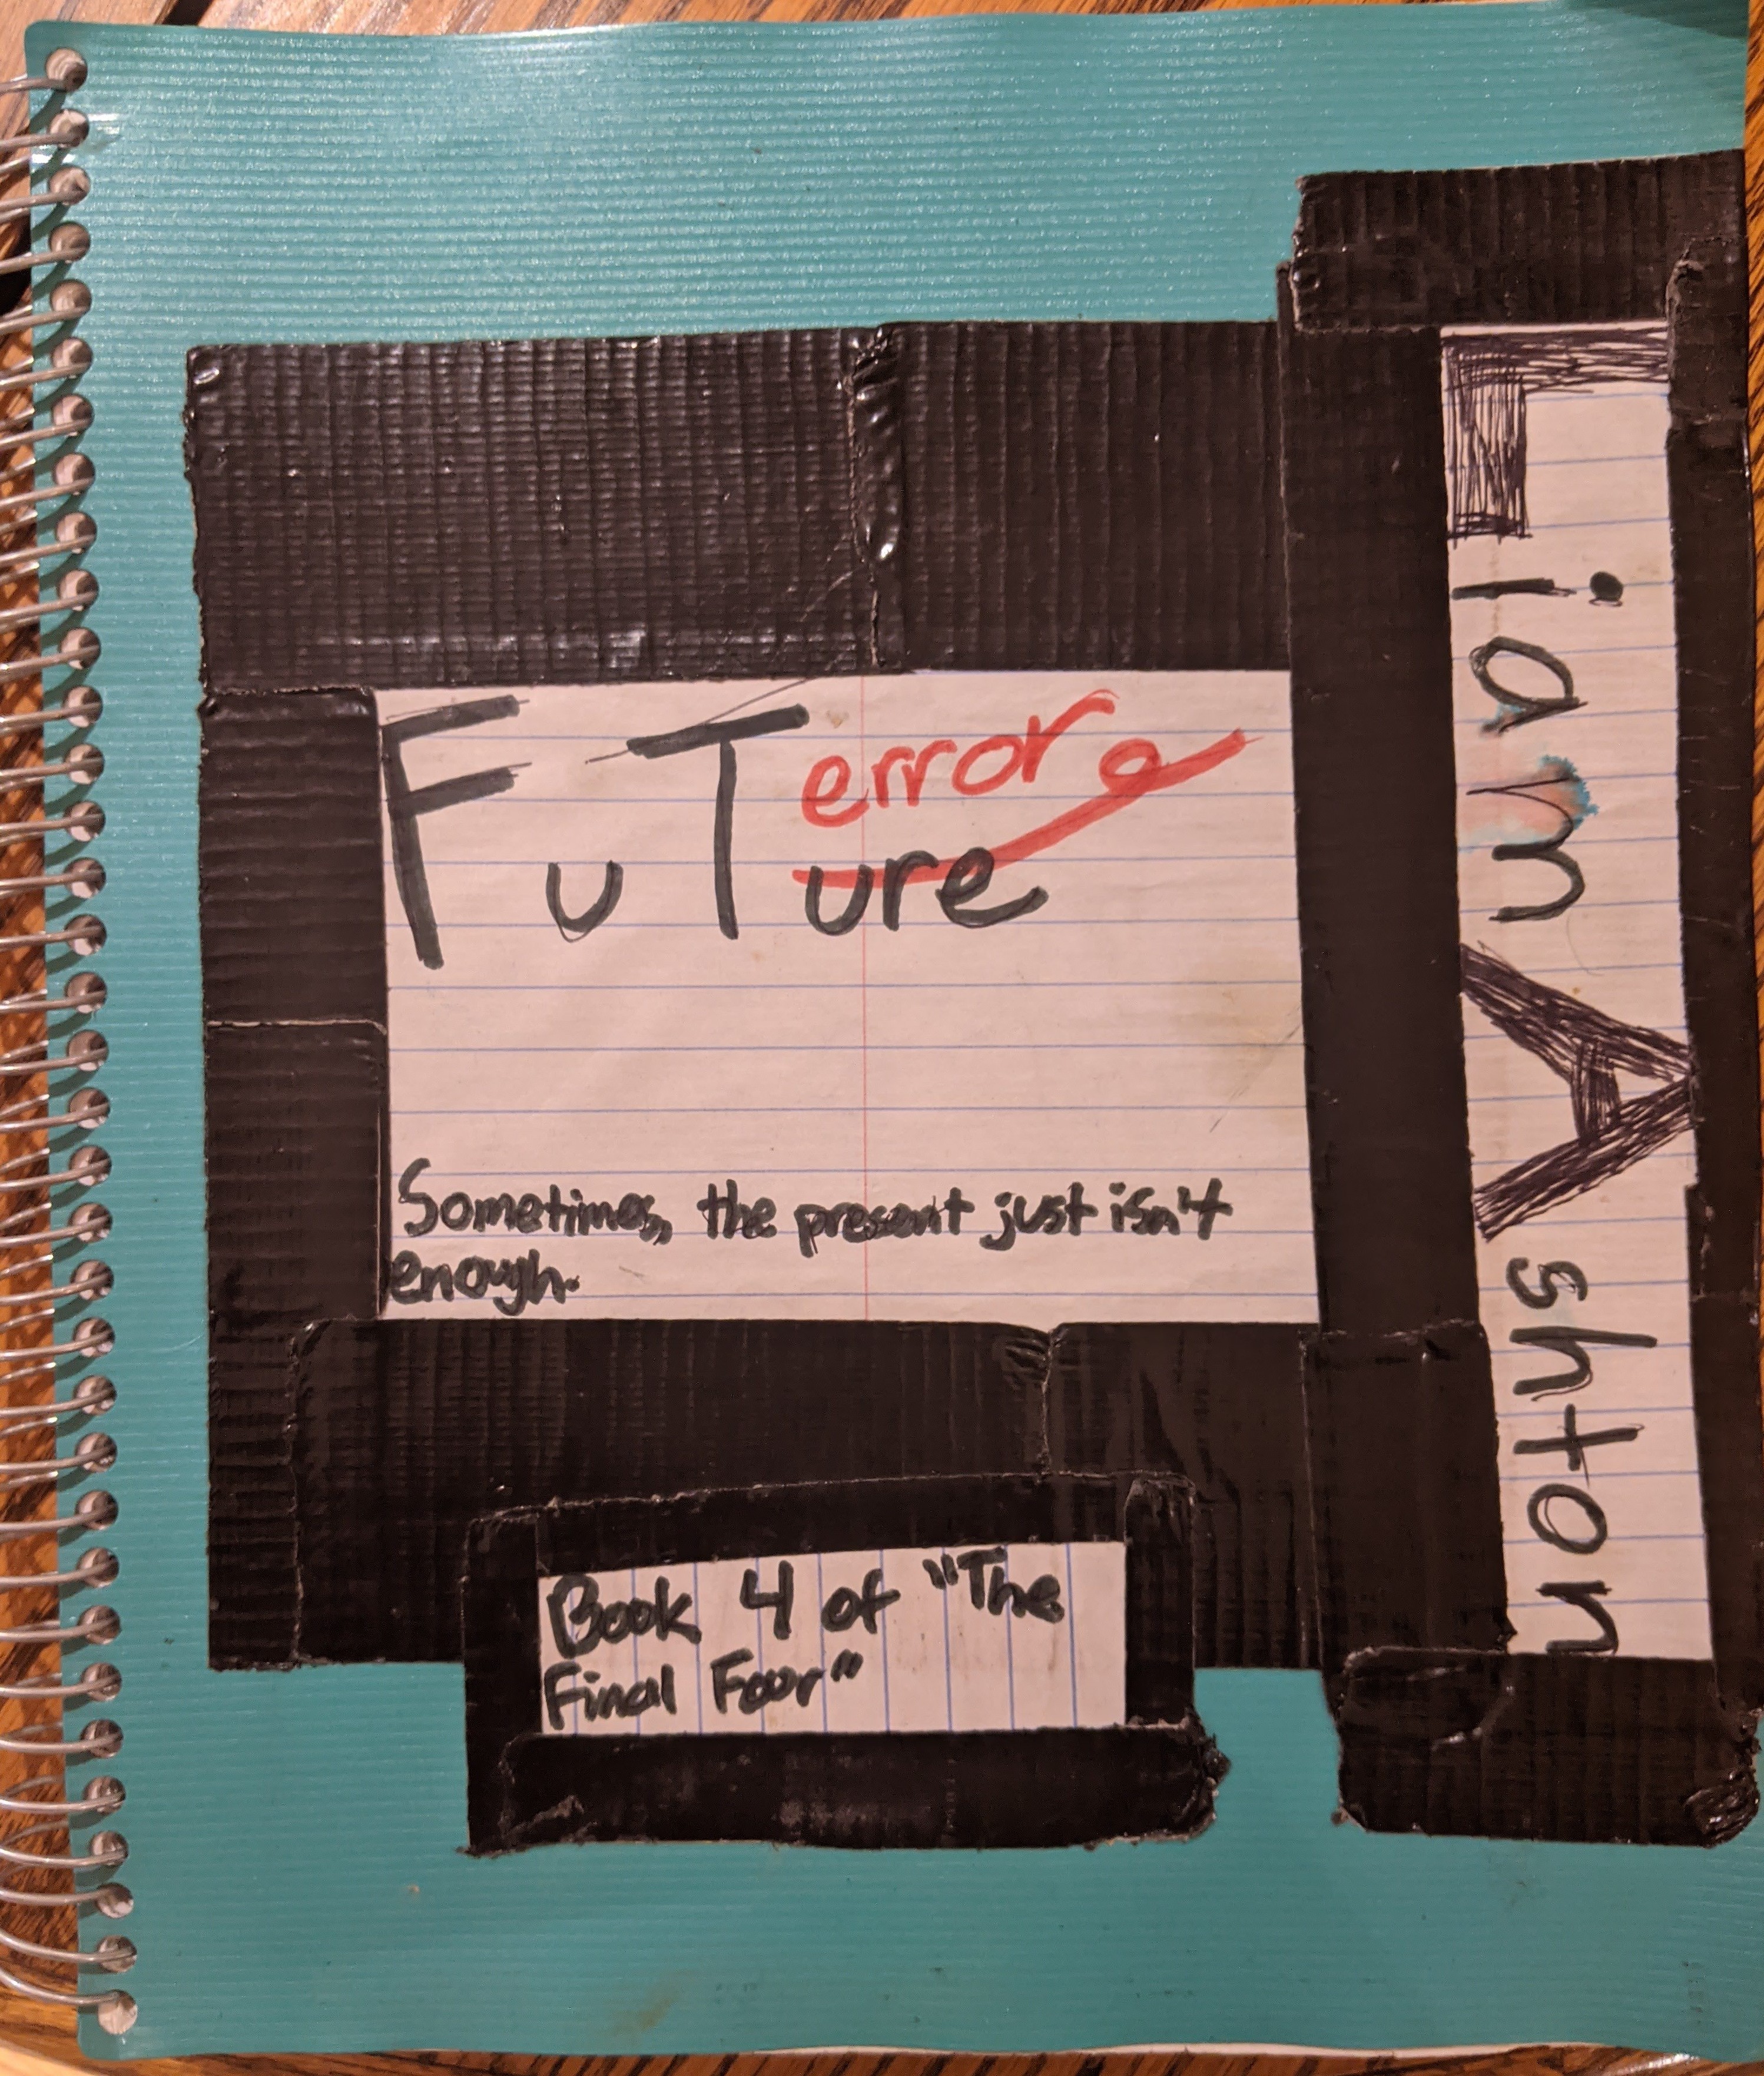 FuTure
error
Sometimes, the present just isn't
enough.
Book 4 of "The
Final Four"
Liam Ashton